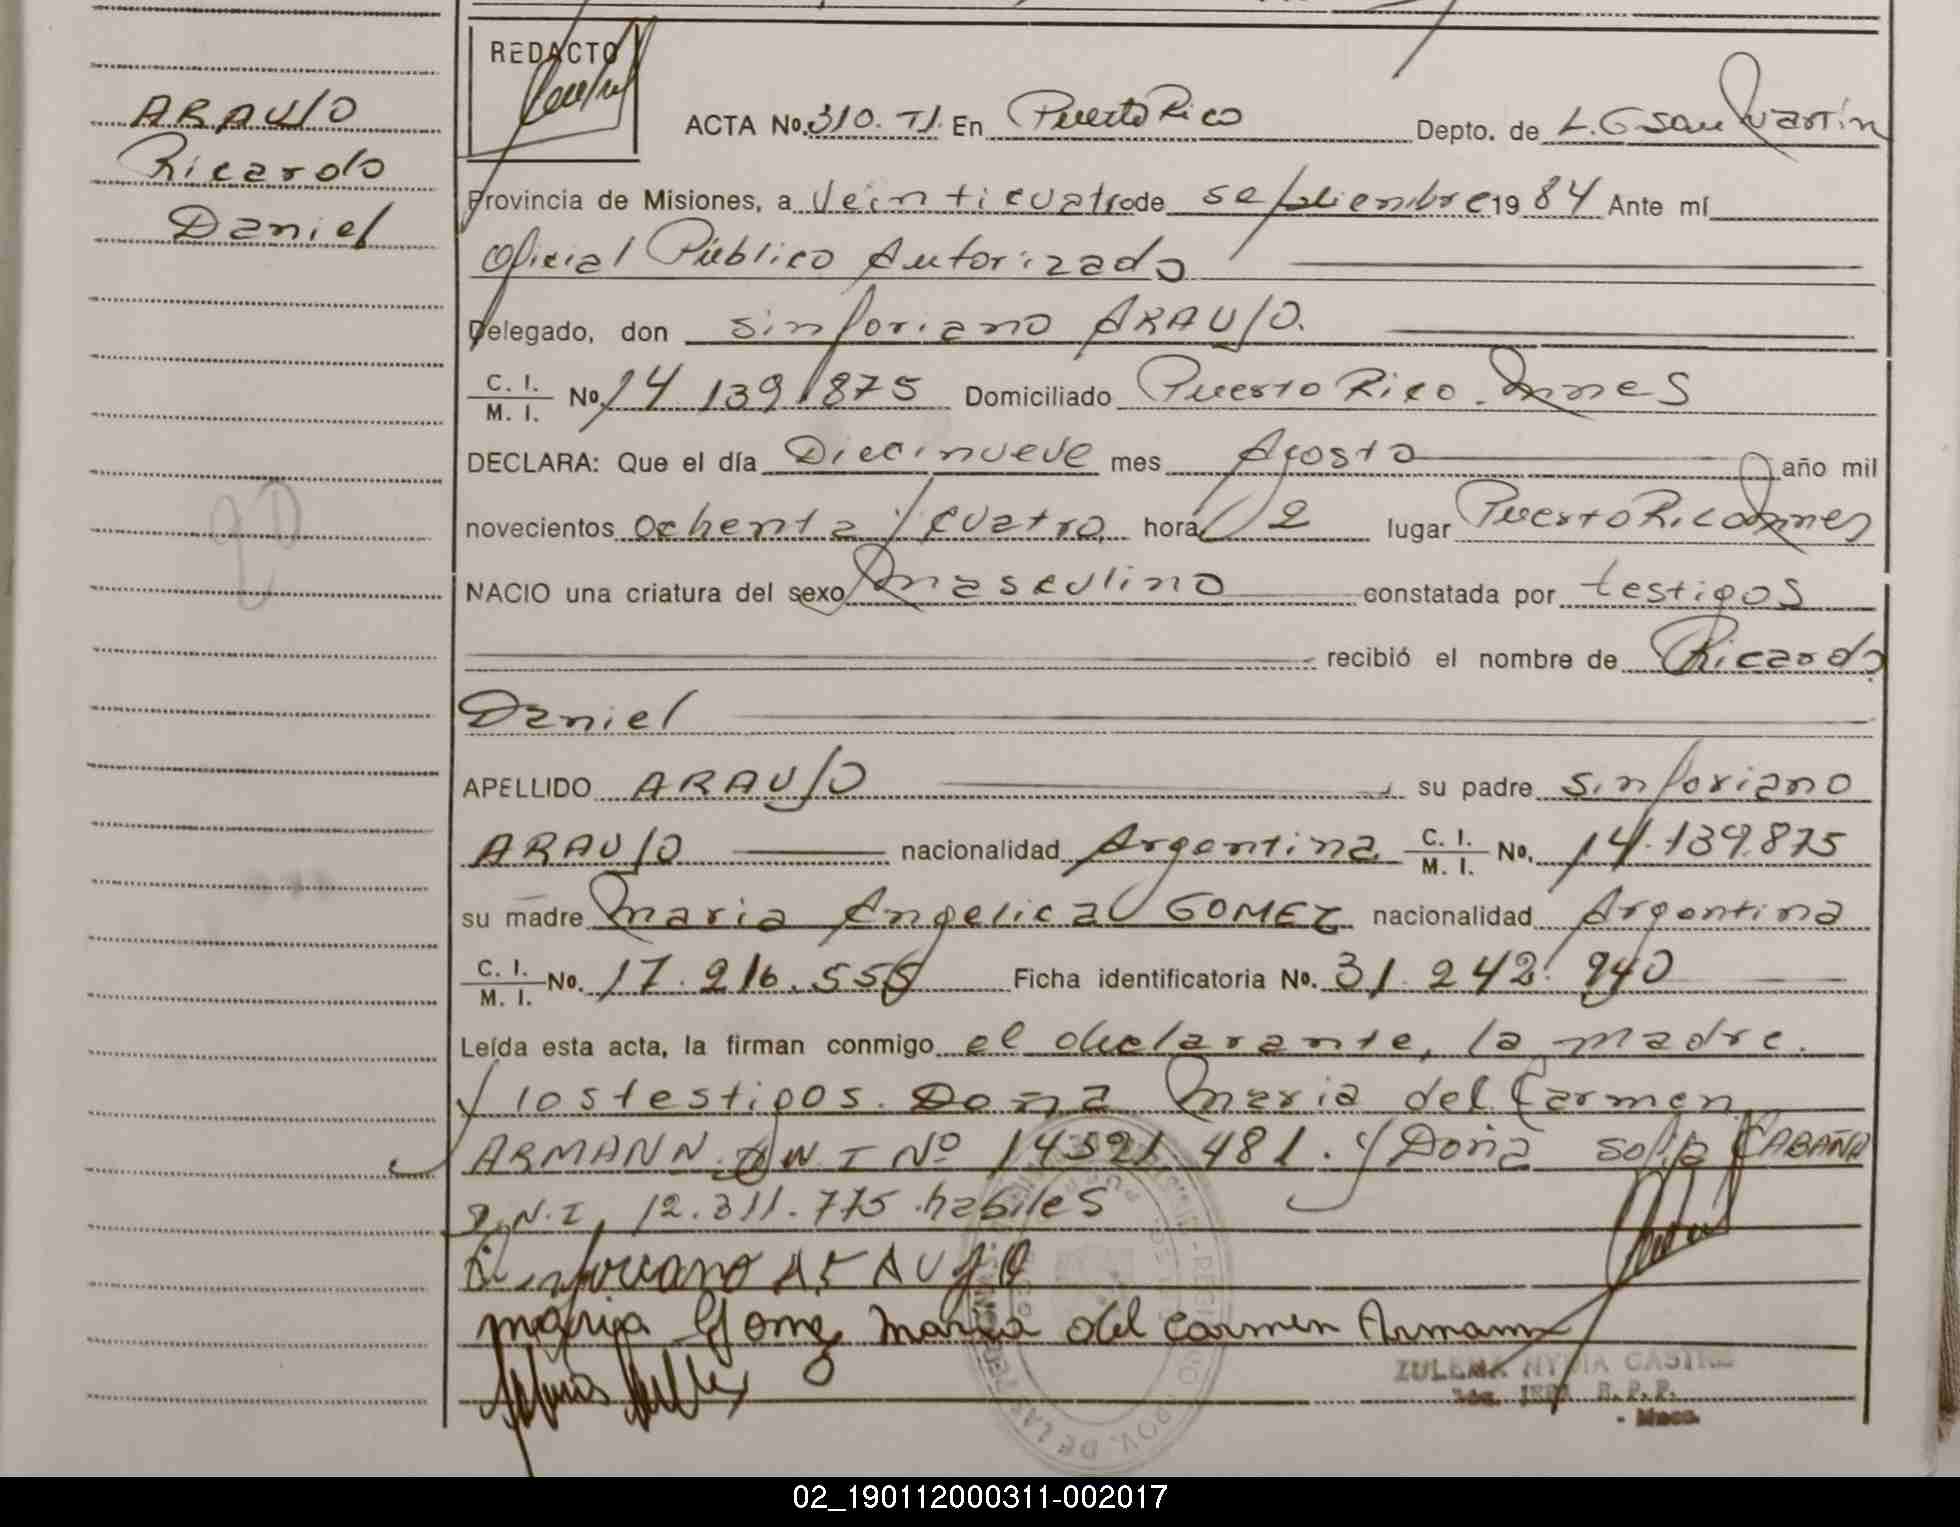 ARAUJO
Ricardo
Daniel
REDACTO
ACTA No. 310. TI. En Puerto Rico Depto. de L. G San Martín
Provincia de Misiones, a veinticuatro de septiembre 19 84 Ante mí
Oficial Público Autorizado
Delegado, don Sinforiano ARAUJO.
C. I. / M. I. No. 14 139 875 Domiciliado Puerto Rico. Mnes
DECLARA: Que el día Diecinueve mes Agosto año mil
novecientos ochenta y cuatro hora 2 lugar Puerto Rico Mnes
NACIO una criatura del sexo masculino constatada por testigos
recibió el nombre de Ricardo
Daniel
APELLIDO ARAUJO su padre Sinforiano
ARAUJO nacionalidad Argentina C. I. / M. I. No. 14.139.875
su madre Maria Angelica GOMEZ nacionalidad Argentina
C. I. / M. I. No. 17.216.555 Ficha identificatoria No. 31.242.940
Leída esta acta, la firman conmigo el declarante, la madre.
y los testigos. Doña Maria del Carmen
ARMANN. D N I Nº 14521 481. y Doña Sofia CABAÑA
D.N.I. 12.311.775 habiles
Sinforiano ARAUJO
Mariya Gomez Maria del Carmen Armann
ZULEMA NYDIA CASTRO
02_190112000311-002017